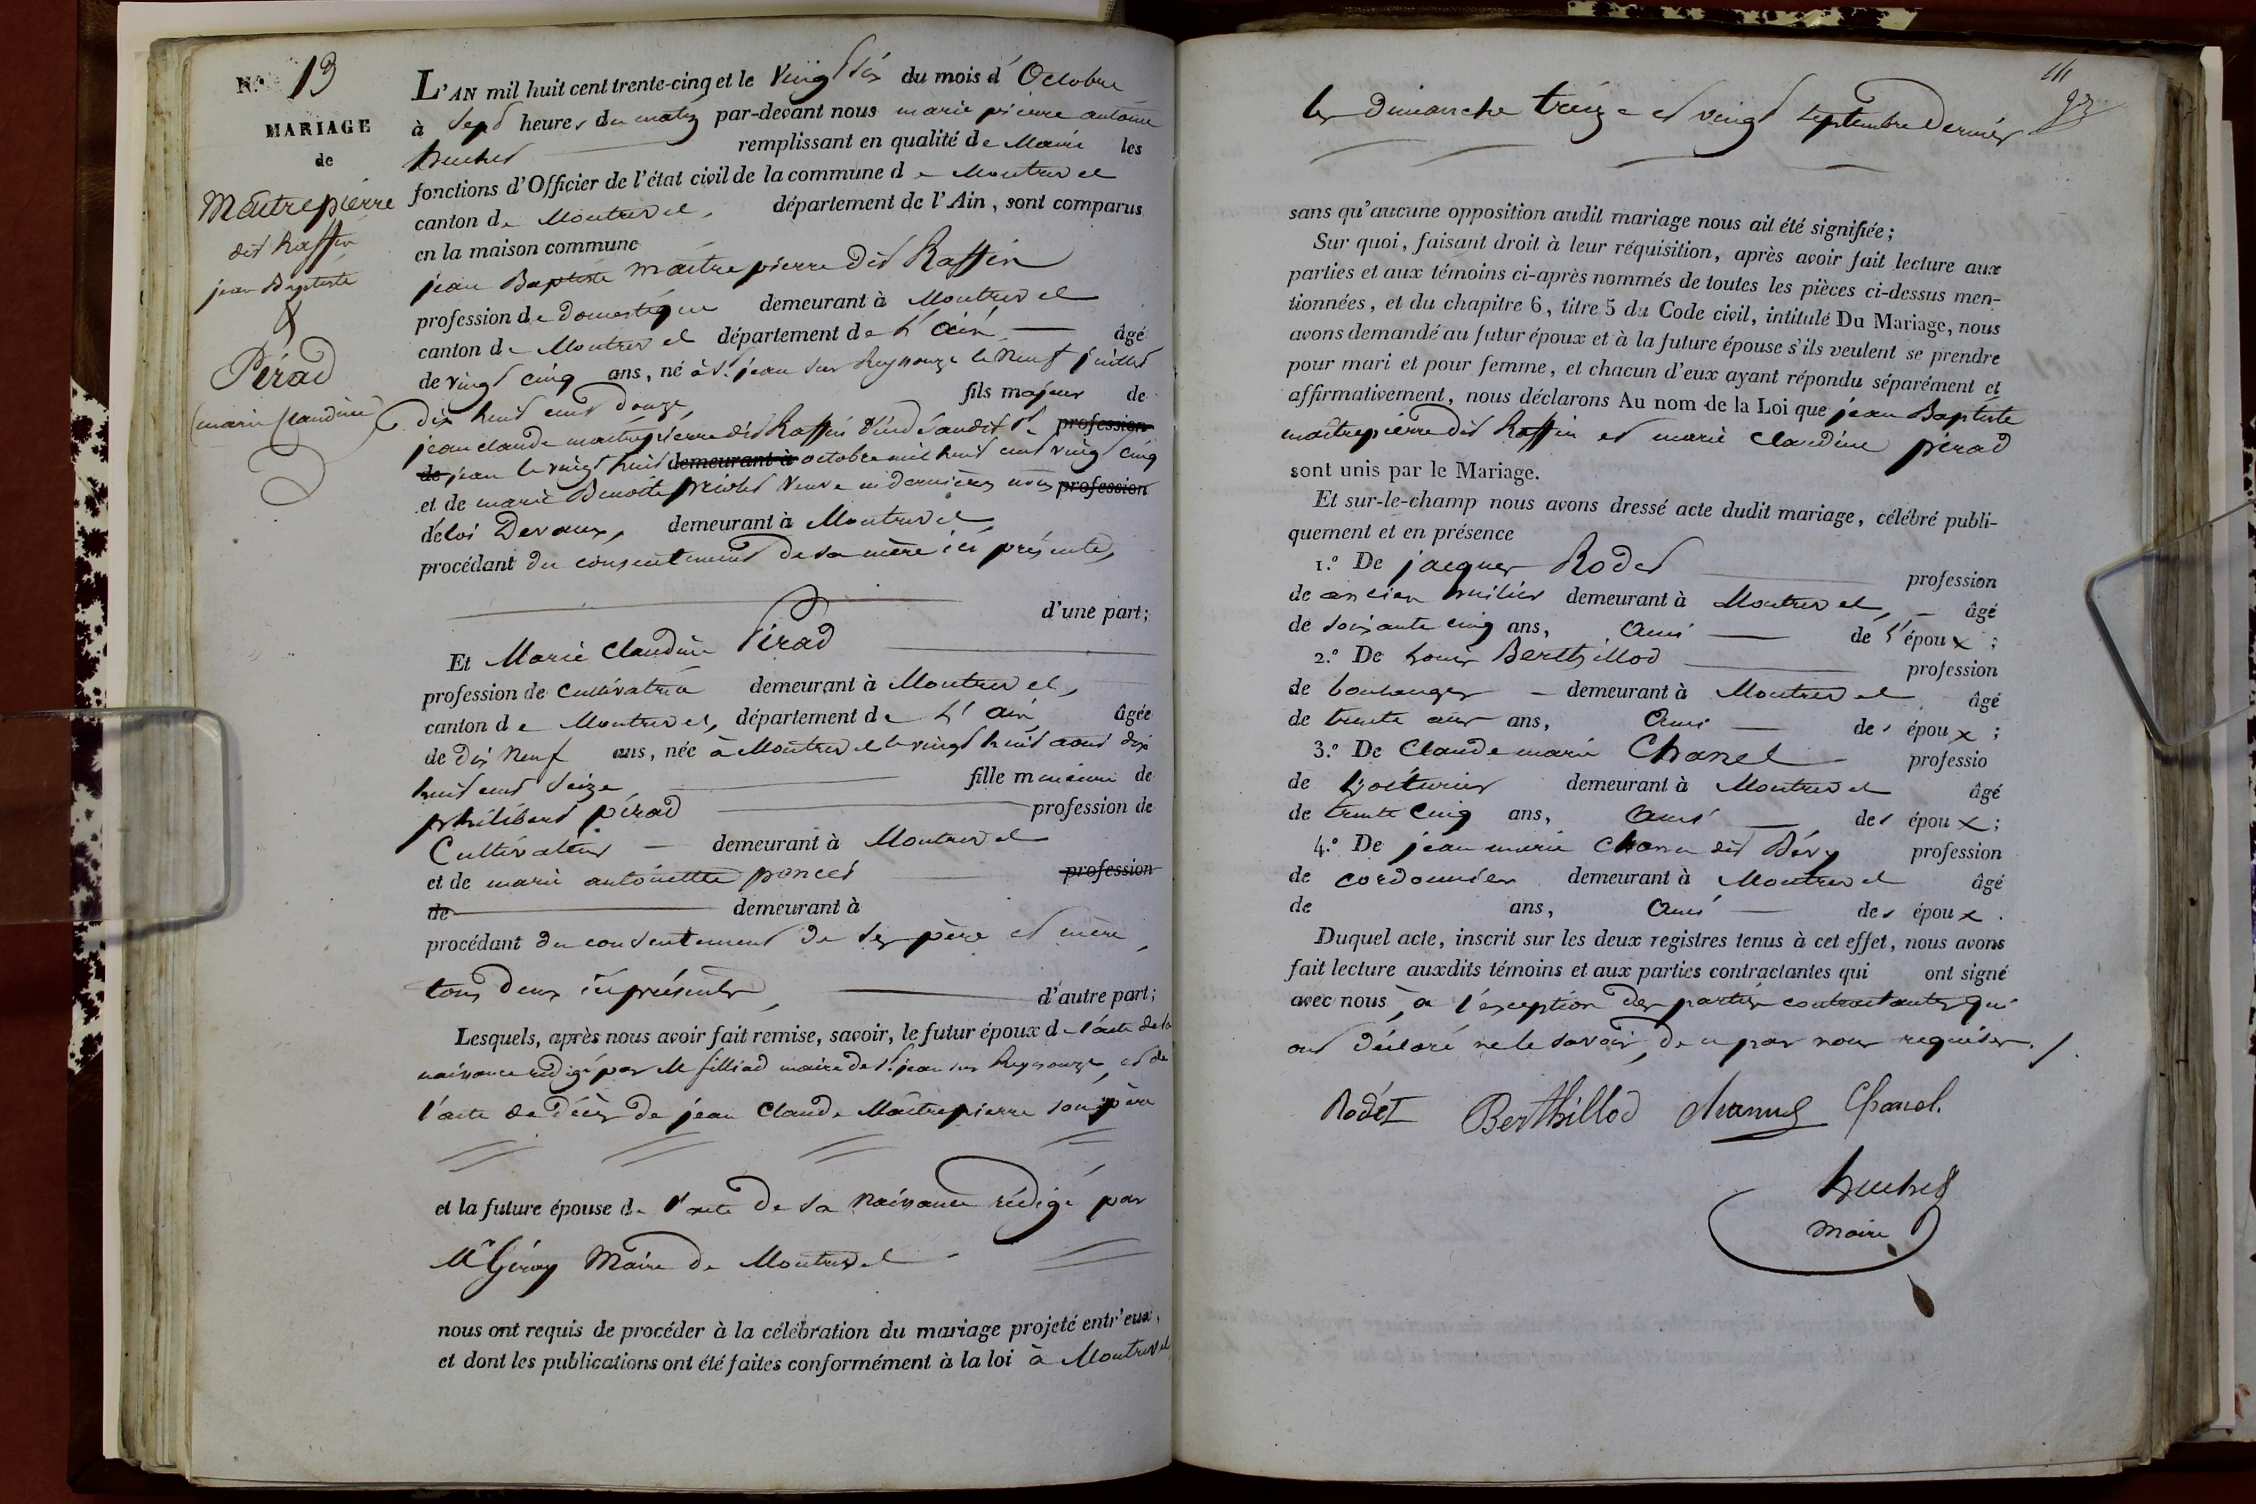 N.° 13
MARIAGE
de
Maîtrepierre
dit Raffin
jean Baptiste
&
Pérad
(marie Claudine)
L'AN mil huit cent trente-cinq et le Vingt six du mois d'Octobre
à Sept heures du matin par-devant nous marie pierre antoine
huchet remplissant en qualité de Maire les
fonctions d'Officier de l'état civil de la commune de Montrevel
canton de Montrevel, département de l'Ain, sont comparus
en la maison commune
jean Baptiste maitrepierre dit Raffin
profession de domestique demeurant à Montrevel
canton de Montrevel département de L'ain âgé
de vingt cinq ans, né à St. jean sur Reyssouze le neuf juillet
dix huit cent douze, fils majeur de
jean claude maitrepierre dit Raffin décédé audit St. profession
de jean le vingt huit demeurant à octobre mil huit cent vingt cinq
et de marie Benoite veuve en dernières noces profession
d'éloi Devaux, demeurant à Montrevel,
procédant du consentement de sa mère ici présente,
d'une part;
Et Marie Claudine Pérad
profession de Cultivatrice demeurant à Montrevel,
canton de Montrevel, département de L'ain âgée
de dix neuf ans, née à Montrevel le vingt huit aout dix
huit cent seize fille mineure de
philibert pérad profession de
Cultivateur demeurant à Montrevel
et de marie antoinette poncet profession
de demeurant à
procédant du consentement de ses père et mère,
tous deux ici présents, d'autre part;
Lesquels, après nous avoir fait remise, savoir, le futur époux de l'acte de sa
naissance rédigé par M filliod maire de St. jean sur Reyssouze, et de
l'acte de décès de jean Claude Maitrepierre son père
et la future épouse de l'acte de sa naissance rédigé par
Mr Maire de Montrevel
nous ont requis de procéder à la célébration du mariage projeté entr'eux,
et dont les publications ont été faites conformément à la loi à Montrevel
les dimanche treize et vingt septembre dernier
sans qu'aucune opposition audit mariage nous ait été signifiée;
Sur quoi, faisant droit à leur réquisition, après avoir fait lecture aux
parties et aux témoins ci-après nommés de toutes les pièces ci-dessus men-
tionnées, et du chapitre 6, titre 5 du Code civil, intitulé Du Mariage, nous
avons demandé au futur époux et à la future épouse s'ils veulent se prendre
pour mari et pour femme, et chacun d'eux ayant répondu séparément et
affirmativement, nous déclarons Au nom de la Loi que jean Baptiste
maitrepierre dit Raffin et marie claudine pérad
sont unis par le Mariage.
Et sur-le-champ nous avons dressé acte dudit mariage, célébré publi-
quement et en présence
1.° De jacques Rodet profession
de ancien huilier demeurant à Montrevel, âgé
de soixante cinq ans, Ami de l'époux;
2.° De Louis Berthillod profession
de boulanger demeurant à Montrevel âgé
de trente ans, Ami des époux;
3.° De Claude marie Chanel professio
de Voiturier demeurant à Montrevel âgé
de trente cinq ans, Ami des époux;
4.° De jean marie dit profession
de cordonnier demeurant à Montrevel âgé
de ans, Ami des époux.
Duquel acte, inscrit sur les deux registres tenus à cet effet, nous avons
fait lecture auxdits témoins et aux parties contractantes qui ont signé
avec nous, a l'exception des parties contractantes qui
ont déclaré ne le savoir, de ce par nous requises.
Rodet Berthillod Chanel.
huchet
Maire